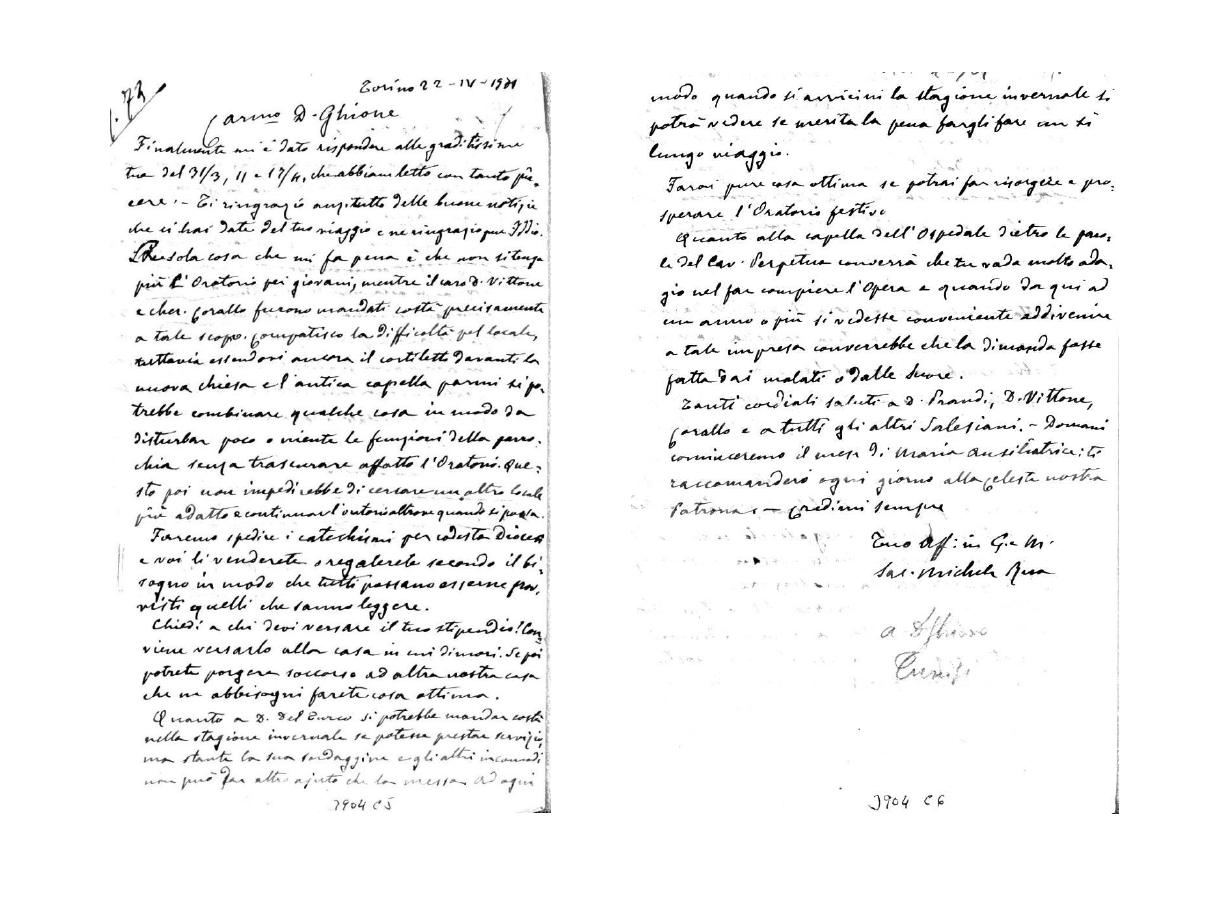 73
Torino 22-IV-1901
Carmo D. Ghione
Finalmente mi è dato rispondere alle graditissime
tue del 31/3, 11 e 17/4, che abbiam letto con tanto pia-
cere. - Ti ringrazio anzitutto delle buone notizie
che ci hai date del tuo viaggio e ne ringrazio pure Iddio.
sola cosa che mi fa pena è che non si tenga
più l'Oratorio pei giovani, mentre il caro D. Vittone
e cher. Corallo furono mandati costà precisamente
a tale scopo. Compatisco la difficoltà pel locale,
tuttavia essendovi ancora il cortiletto davanti la
nuova chiesa e l'antica capella parmi si po-
trebbe combinare qualche cosa in modo da
disturbar poco o niente le funzioni della parro-
chia senza trascurare affatto l'Oratorio. Que-
sto poi non impedirebbe di cercare un altro locale
più adatto e continuar l'oratorio altrove quando si possa.
Faremo spedire i catechismi per codesta Diocesi
e voi li venderete o regalerete secondo il bi-
sogno in modo che tutti possano esserne prov-
visti quelli che sanno leggere.
Chiedi a chi devi versare il tuo stipendio? Con-
viene versarlo alla casa in cui dimori. Se poi
potrete porgere soccorso ad altra nostra casa
che ne abbisogni farete cosa ottima.
Quanto a D. Del Turco si potrebbe mandar costà
nella stagione invernale se potesse prestar servizio,
ma stante la sua sordaggine e gli altri incomodi
non può dar altro ajuto che la messa. Ad ogni
3904 C5
modo quando si avvicini la stagione invernale si
potrà vedere se merita la pena fargli fare un sì
lungo viaggio.
Farai pure cosa ottima se potrai far risorgere e pro-
sperare l'Oratorio festivo
Quanto alla capella dell'Ospedale dietro le paro-
le del Cav. Perpetua converrà che tu vada molto ada-
gio nel far compiere l'Opera e quando da qui ad
un anno o più si vedesse conveniente addivenire
a tale impresa converrebbe che la dimanda fosse
fatta dai malati o dalle Suore.
Tanti cordiali saluti a D. Prandi, D. Vittone,
Corallo e a tutti gli altri Salesiani. - Domani
cominceremo il mese di Maria Ausiliatrice: ti
raccomanderò ogni giorno alla celeste nostra
Patrona. - Credimi sempre
Tuo aff. in G. e M.
Sac. Michele Rua
a D Ghione
Tunisi
3904 C6